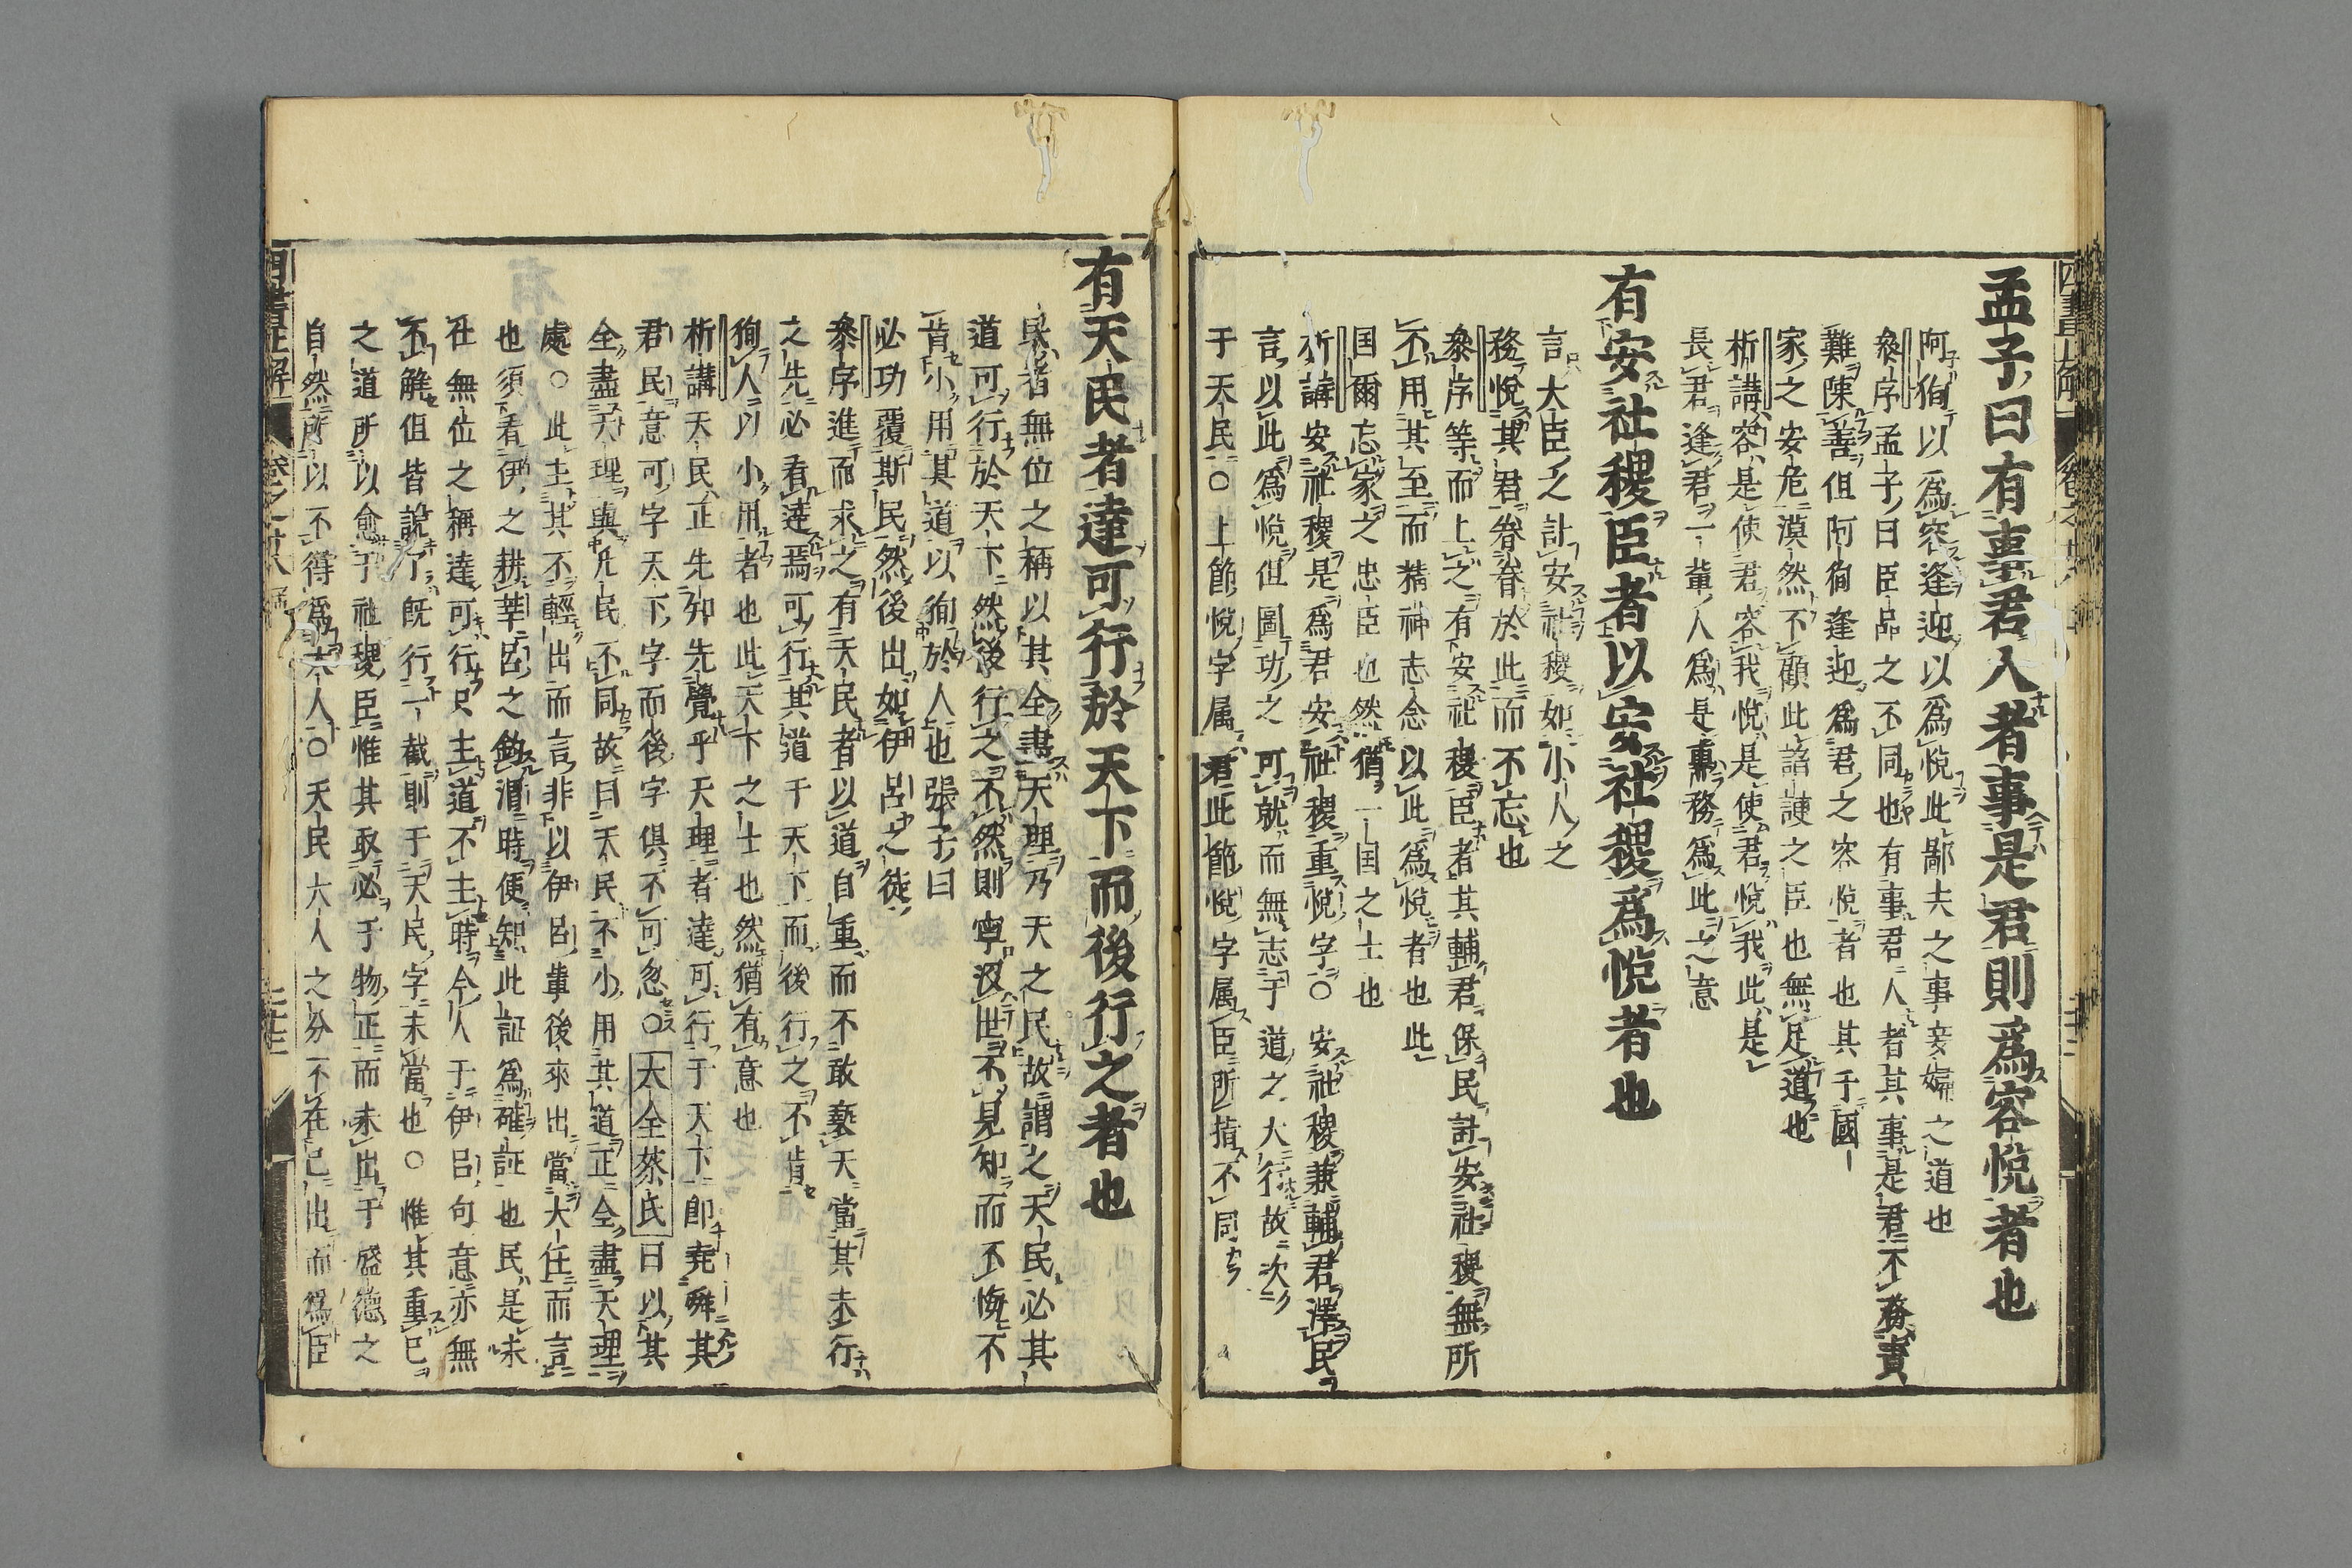 孟子曰有事君人者事是君則爲容悅者也
阿徇以爲容逢迎以爲悅此鄙夫之事妾婦之道也
參序孟子曰臣品之不同也有事君人者其事是君不務責
難陳善但阿徇逢迎爲君之容悅者也其于國
家之安危漠然不顧此諂諛之臣也無足道也
析講容是使君容我悅是使君悅我此是
長君逢君一輩人爲是專務爲此之意
有安社稷臣者以安社稷爲悅者也
言大臣之計安社稷如小人之
務悅其君眷眷於此而不忘也
參序等而上之有安社稷臣者其輔君保民計安社稷無所
不用其至而精神志念以此爲悅者也此
国爾忘家之忠臣也然猶一国之士也
析講安社稷是爲君安社稷重悅字○安社稷兼輔君澤民
言以此爲悅但圖功之可就而無志于道之大行故次
于天民○上節悅字属君此節悅字属臣所指不同
有天民者達可行於天下而後行之者也
民者無位之稱以其全盡天理乃天之民故謂之天民必其
道可行於天下然後行之不然則寧沒世不見知而不悔不
肯小用其道以徇於人也張子曰
必功覆斯民然後出如伊呂之徒
參序進而求之有天民者以道自重而不敢褻天當其未行
之先必看達焉可行其道于天下而後行之不肯
徇人以小用者也此天下之士也然猶有意也
析講天民正先知先覺乎天理者達可行于天下卽堯舜其
君民意可字天下字而後字俱不可忽○大全蔡氏曰以其
全盡天理與凡民不同故曰天民不小用其道正全盡天理
處○此主其不輕出而言非以伊呂事後來出當大任而言
也須看伊之耕莘呂之釣渭時便知此証爲確証也民是未
在無位之稱達可行只主道不主時今人于伊呂句意亦無
不解但皆說了旣行一截則于天民字未當也○惟其重已
之道所以愈于社稷臣惟其取必于物正而未出于盛德之
自然所以不得爲大人○天民大人之分不在已出而爲臣